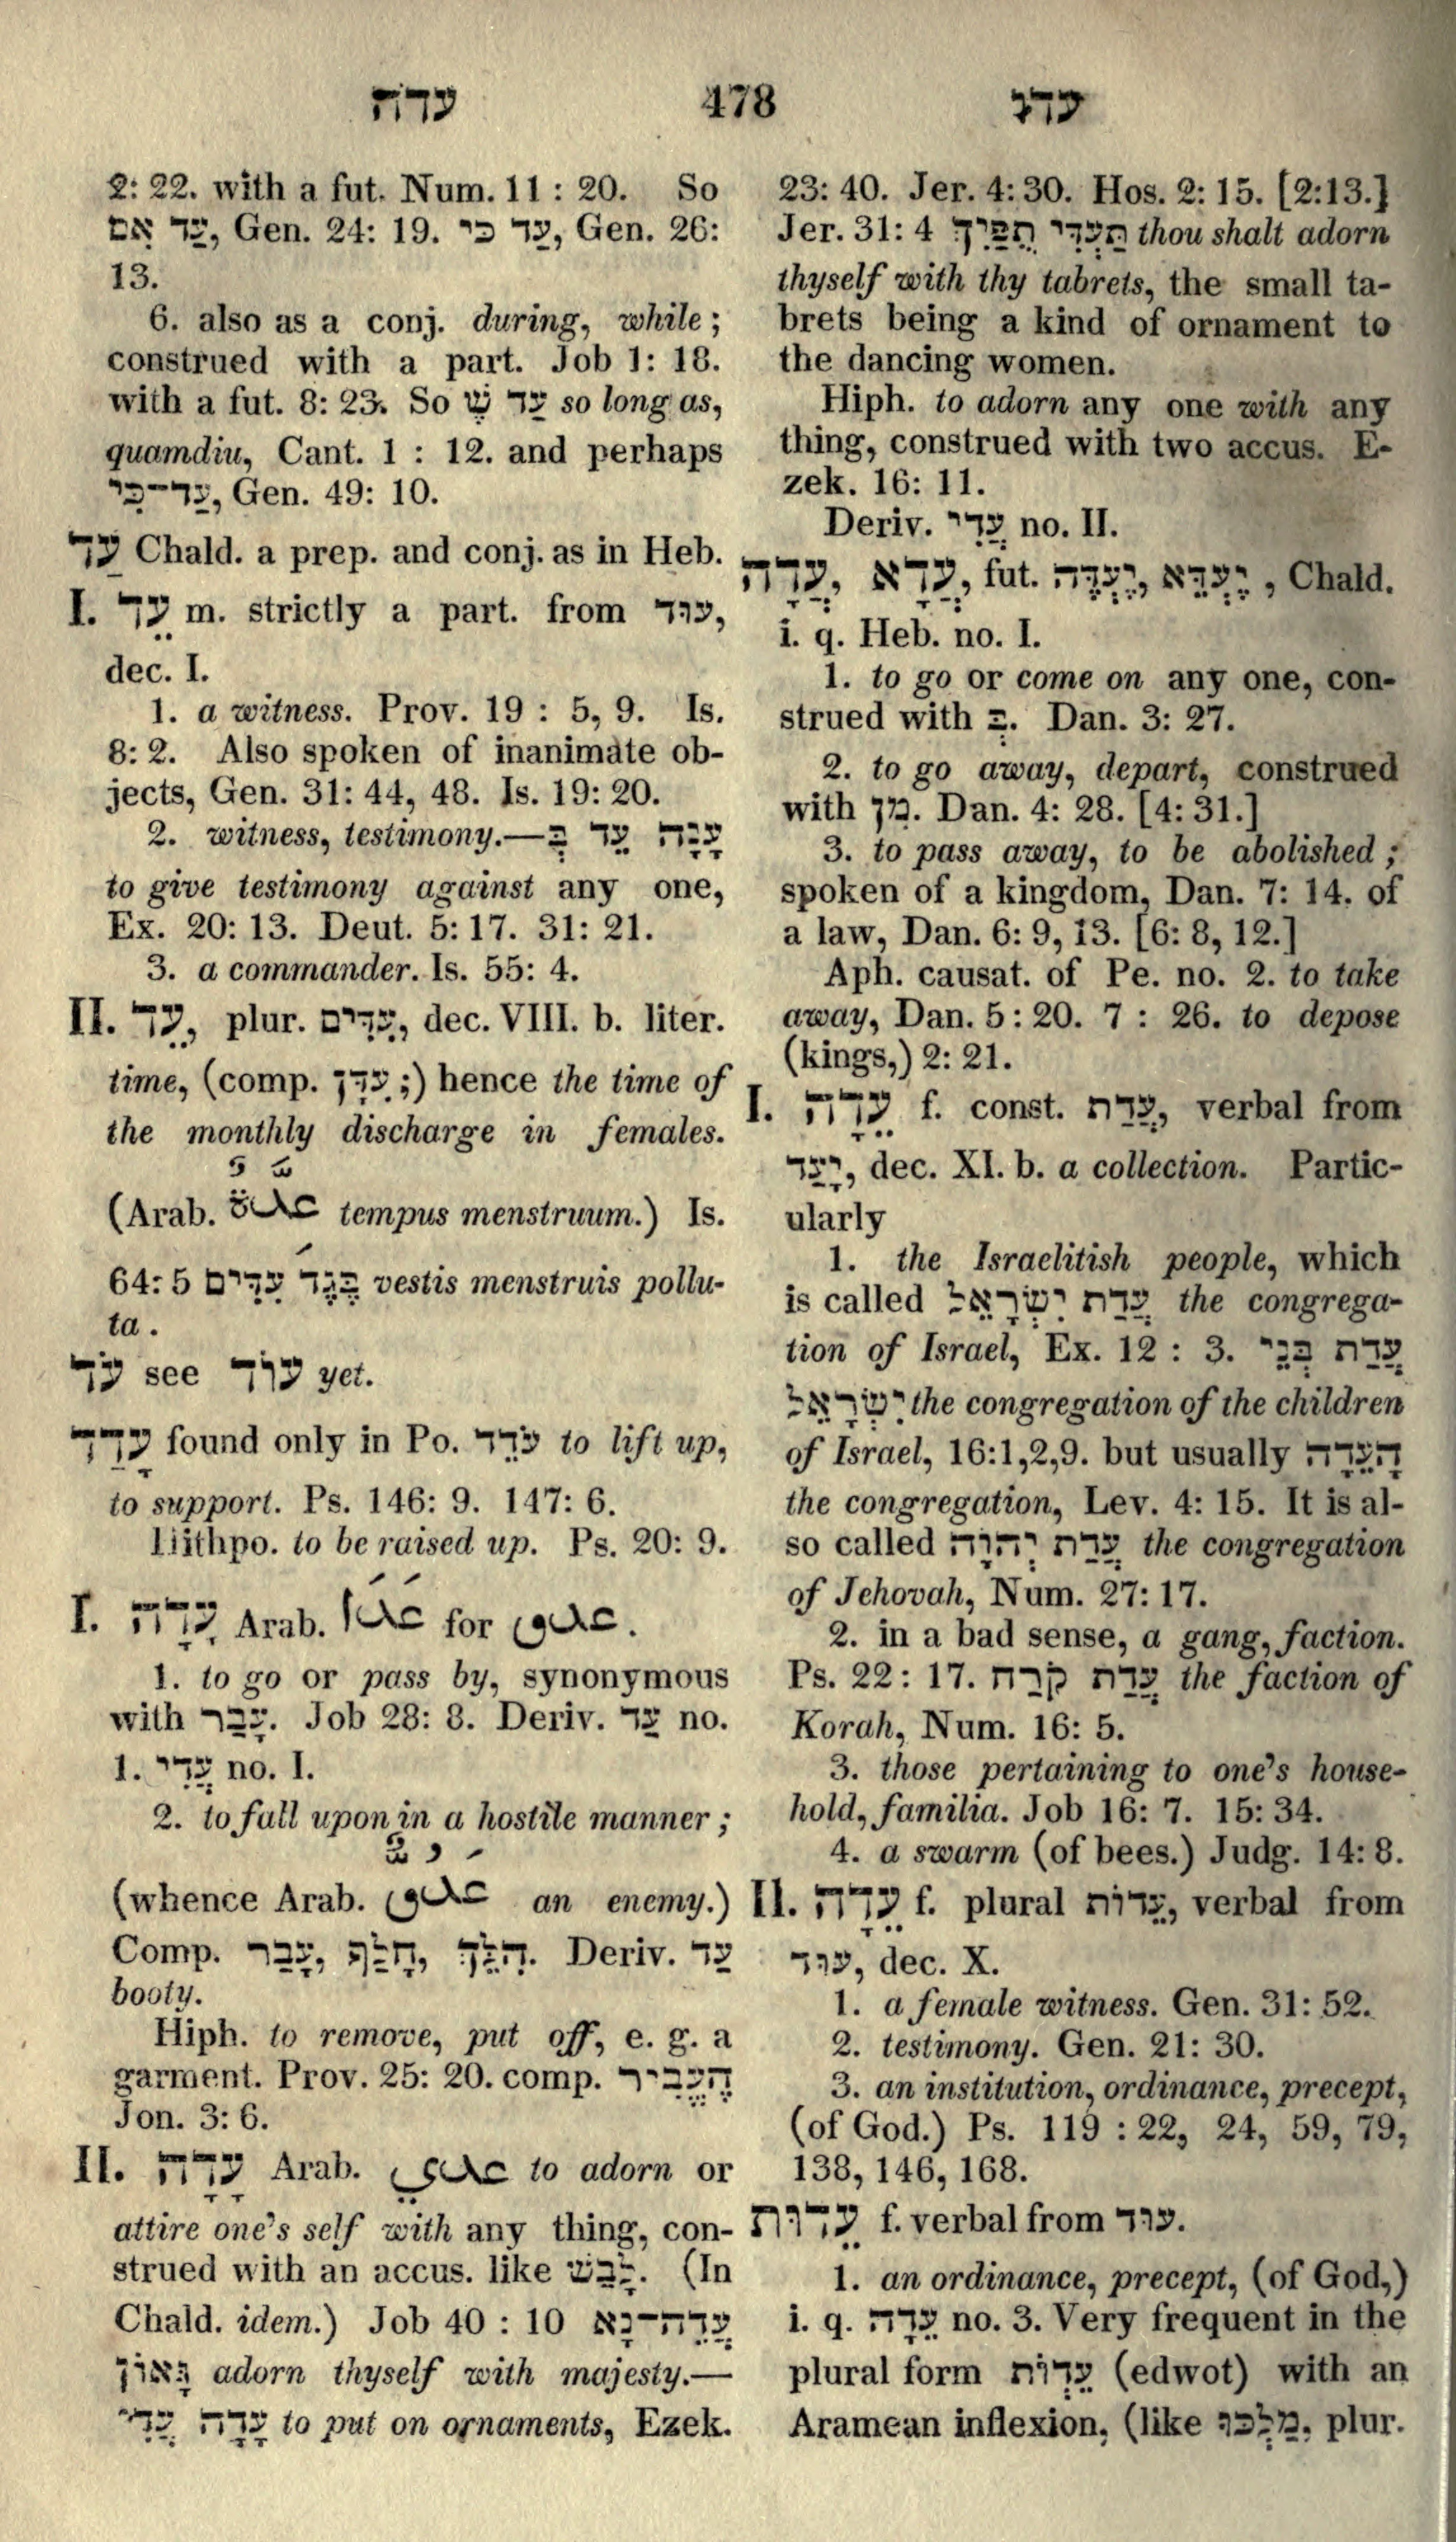 עדה 478 עדו
2: 22. with a fut. Num. 11 : 20. So
עַד אִם, Gen. 24: 19. עַד כִּי, Gen. 26:
13.
6. also as a conj. during, while ;
construed with a part. Job 1: 18.
with a fut. 8: 23. So עַד שֶׁ so long as,
quamdiu, Cant. 1 : 12. and perhaps
עַד־כִּי, Gen. 49: 10.
עַד Chald. a prep. and conj. as in Heb.
I. עֵד m. strictly a part. from עוּד,
dec. I.
1. a witness. Prov. 19 : 5, 9. Is.
8: 2. Also spoken of inanimate ob-
jects, Gen. 31: 44, 48. Is. 19: 20.
2. witness, testimony.—עָנָה עֵד בְּ
to give testimony against any one,
Ex. 20: 13. Deut. 5: 17. 31: 21.
3. a commander. Is. 55: 4.
II. עֵד, plur. עִדִּים, dec. VIII. b. liter.
time, (comp. עִדָּן ;) hence the time of
the monthly discharge in females.
(Arab. عِدَّةٌ tempus menstruum.) Is.
64: 5 בֶּגֶד עִדִּים vestis menstruis pollu-
ta .
עֹד see עוֹד yet.
עָדַד found only in Po. עֹדֵד to lift up,
to support. Ps. 146: 9. 147: 6.
Hithpo. to be raised up. Ps. 20: 9.
I. עָדָה Arab. عَدَا for عدو.
1. to go or pass by, synonymous
with עָבַר. Job 28: 8. Deriv. עַד no.
1. עֲדִי no. I.
2. to fall upon in a hostile manner ;
(whence Arab. عَدُوٌّ an enemy.)
Comp. עָבַר, חָלַף, הָלַךְ. Deriv. עַד
booty.
Hiph. to remove, put off, e. g. a
garment. Prov. 25: 20. comp. הֶעֱבִיר
Jon. 3: 6.
II. עָדָה Arab. عدى to adorn or
attire one's self with any thing, con-
strued with an accus. like לָבַשׁ. (In
Chald. idem.) Job 40 : 10 עֲדֵה־נָא
גָאוֹן adorn thyself with majesty.—
עָדָה עֲדִי to put on ornaments, Ezek.
23: 40. Jer. 4: 30. Hos. 2: 15. [2:13.]
Jer. 31: 4 תַּעְדִּי תֻפַּיִךְ thou shalt adorn
thyself with thy tabrets, the small ta-
brets being a kind of ornament to
the dancing women.
Hiph. to adorn any one with any
thing, construed with two accus. E-
zek. 16: 11.
Deriv. עֲדִי no. II.
עֲדָה, עֲדָא, fut. יֶעְדֵּה, יֶעְדֵּא , Chald.
i. q. Heb. no. I.
1. to go or come on any one, con-
strued with בְּ. Dan. 3: 27.
2. to go away, depart, construed
with מִן. Dan. 4: 28. [4: 31.]
3. to pass away, to be abolished ;
spoken of a kingdom, Dan. 7: 14. of
a law, Dan. 6: 9, 13. [6: 8, 12.]
Aph. causat. of Pe. no. 2. to take
away, Dan. 5 : 20. 7 : 26. to depose
(kings,) 2: 21.
I. עֵדָה f. const. עֲדַת, verbal from
יָעַד, dec. XI. b. a collection. Partic-
ularly
1. the Israelitish people, which
is called עֲדַת יִשְׂרָאֵל the congrega-
tion of Israel, Ex. 12 : 3. עֲדַת בְּנֵי
יִשְׂרָאֵל the congregation of the children
of Israel, 16:1,2,9. but usually הָעֵדָה
the congregation, Lev. 4: 15. It is al-
so called עֲדַת יְהוָֹה the congregation
of Jehovah, Num. 27: 17.
2. in a bad sense, a gang, faction.
Ps. 22 : 17. עֲדַת קֹרַח the faction of
Korah, Num. 16: 5.
3. those pertaining to one's house-
hold, familia. Job 16: 7. 15: 34.
4. a swarm (of bees.) Judg. 14: 8.
II. עֵדָה f. plural עֵדוֹת, verbal from
עוּד, dec. X.
1. a female witness. Gen. 31: 52.
2. testimony. Gen. 21: 30.
3. an institution, ordinance, precept,
(of God.) Ps. 119 : 22, 24, 59, 79,
138, 146, 168.
עֵדוּת f. verbal from עוּד.
1. an ordinance, precept, (of God,)
i. q. עֵדָה no. 3. Very frequent in the
plural form עֵדְוֹת (edwot) with an
Aramean inflexion, (like מַלְכוּ, plur.